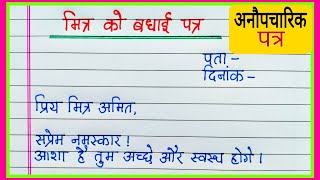 मित्र को बधाई पत्र
अनौपचारिक
पत्र
पता:-
दिनांक-
प्रिय मित्र अमित,
सप्रेम नमस्कार !
आशा है तुम अच्छे और स्वस्थ होगे।